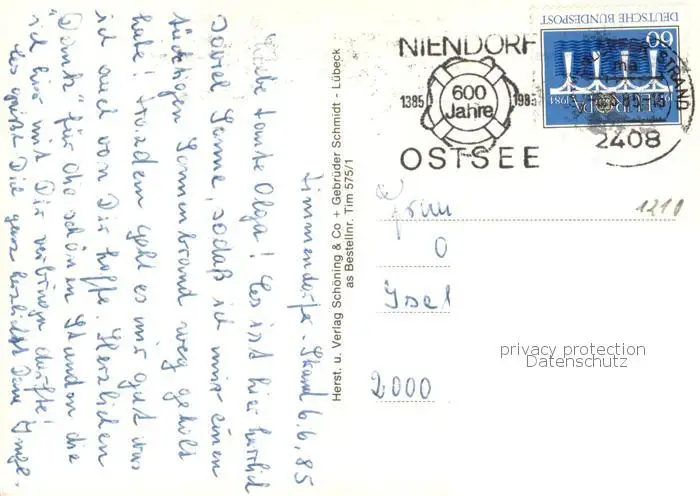 Timmendorfer-Strand 6.6.85
Liebe Tante Olga! Es ist hier herrlich
soviel Sonne, sodaß ich mir einen
tüchtigen Sonnenbrand weg geholt
habe! Trotzdem geht es mir gut was
ich auch von Dir hoffe. Herzlichen
"Dank" für die schönen Stunden die
ich hier mit Dir verbringen durfte!
Es grüßt Dich ganz herzlichst Deine Inge.
Herst. u. Verlag Schöning & Co + Gebrüder Schmidt - Lübeck
as Bestellnr. Tim 575/1
NIENDORF
1385 600 Jahre 1985
OSTSEE
DEUTSCHE BUNDESPOST
60
EUROPA
1984
2408
1210
Frau
O
Isel
2000
privacy protection
Datenschutz